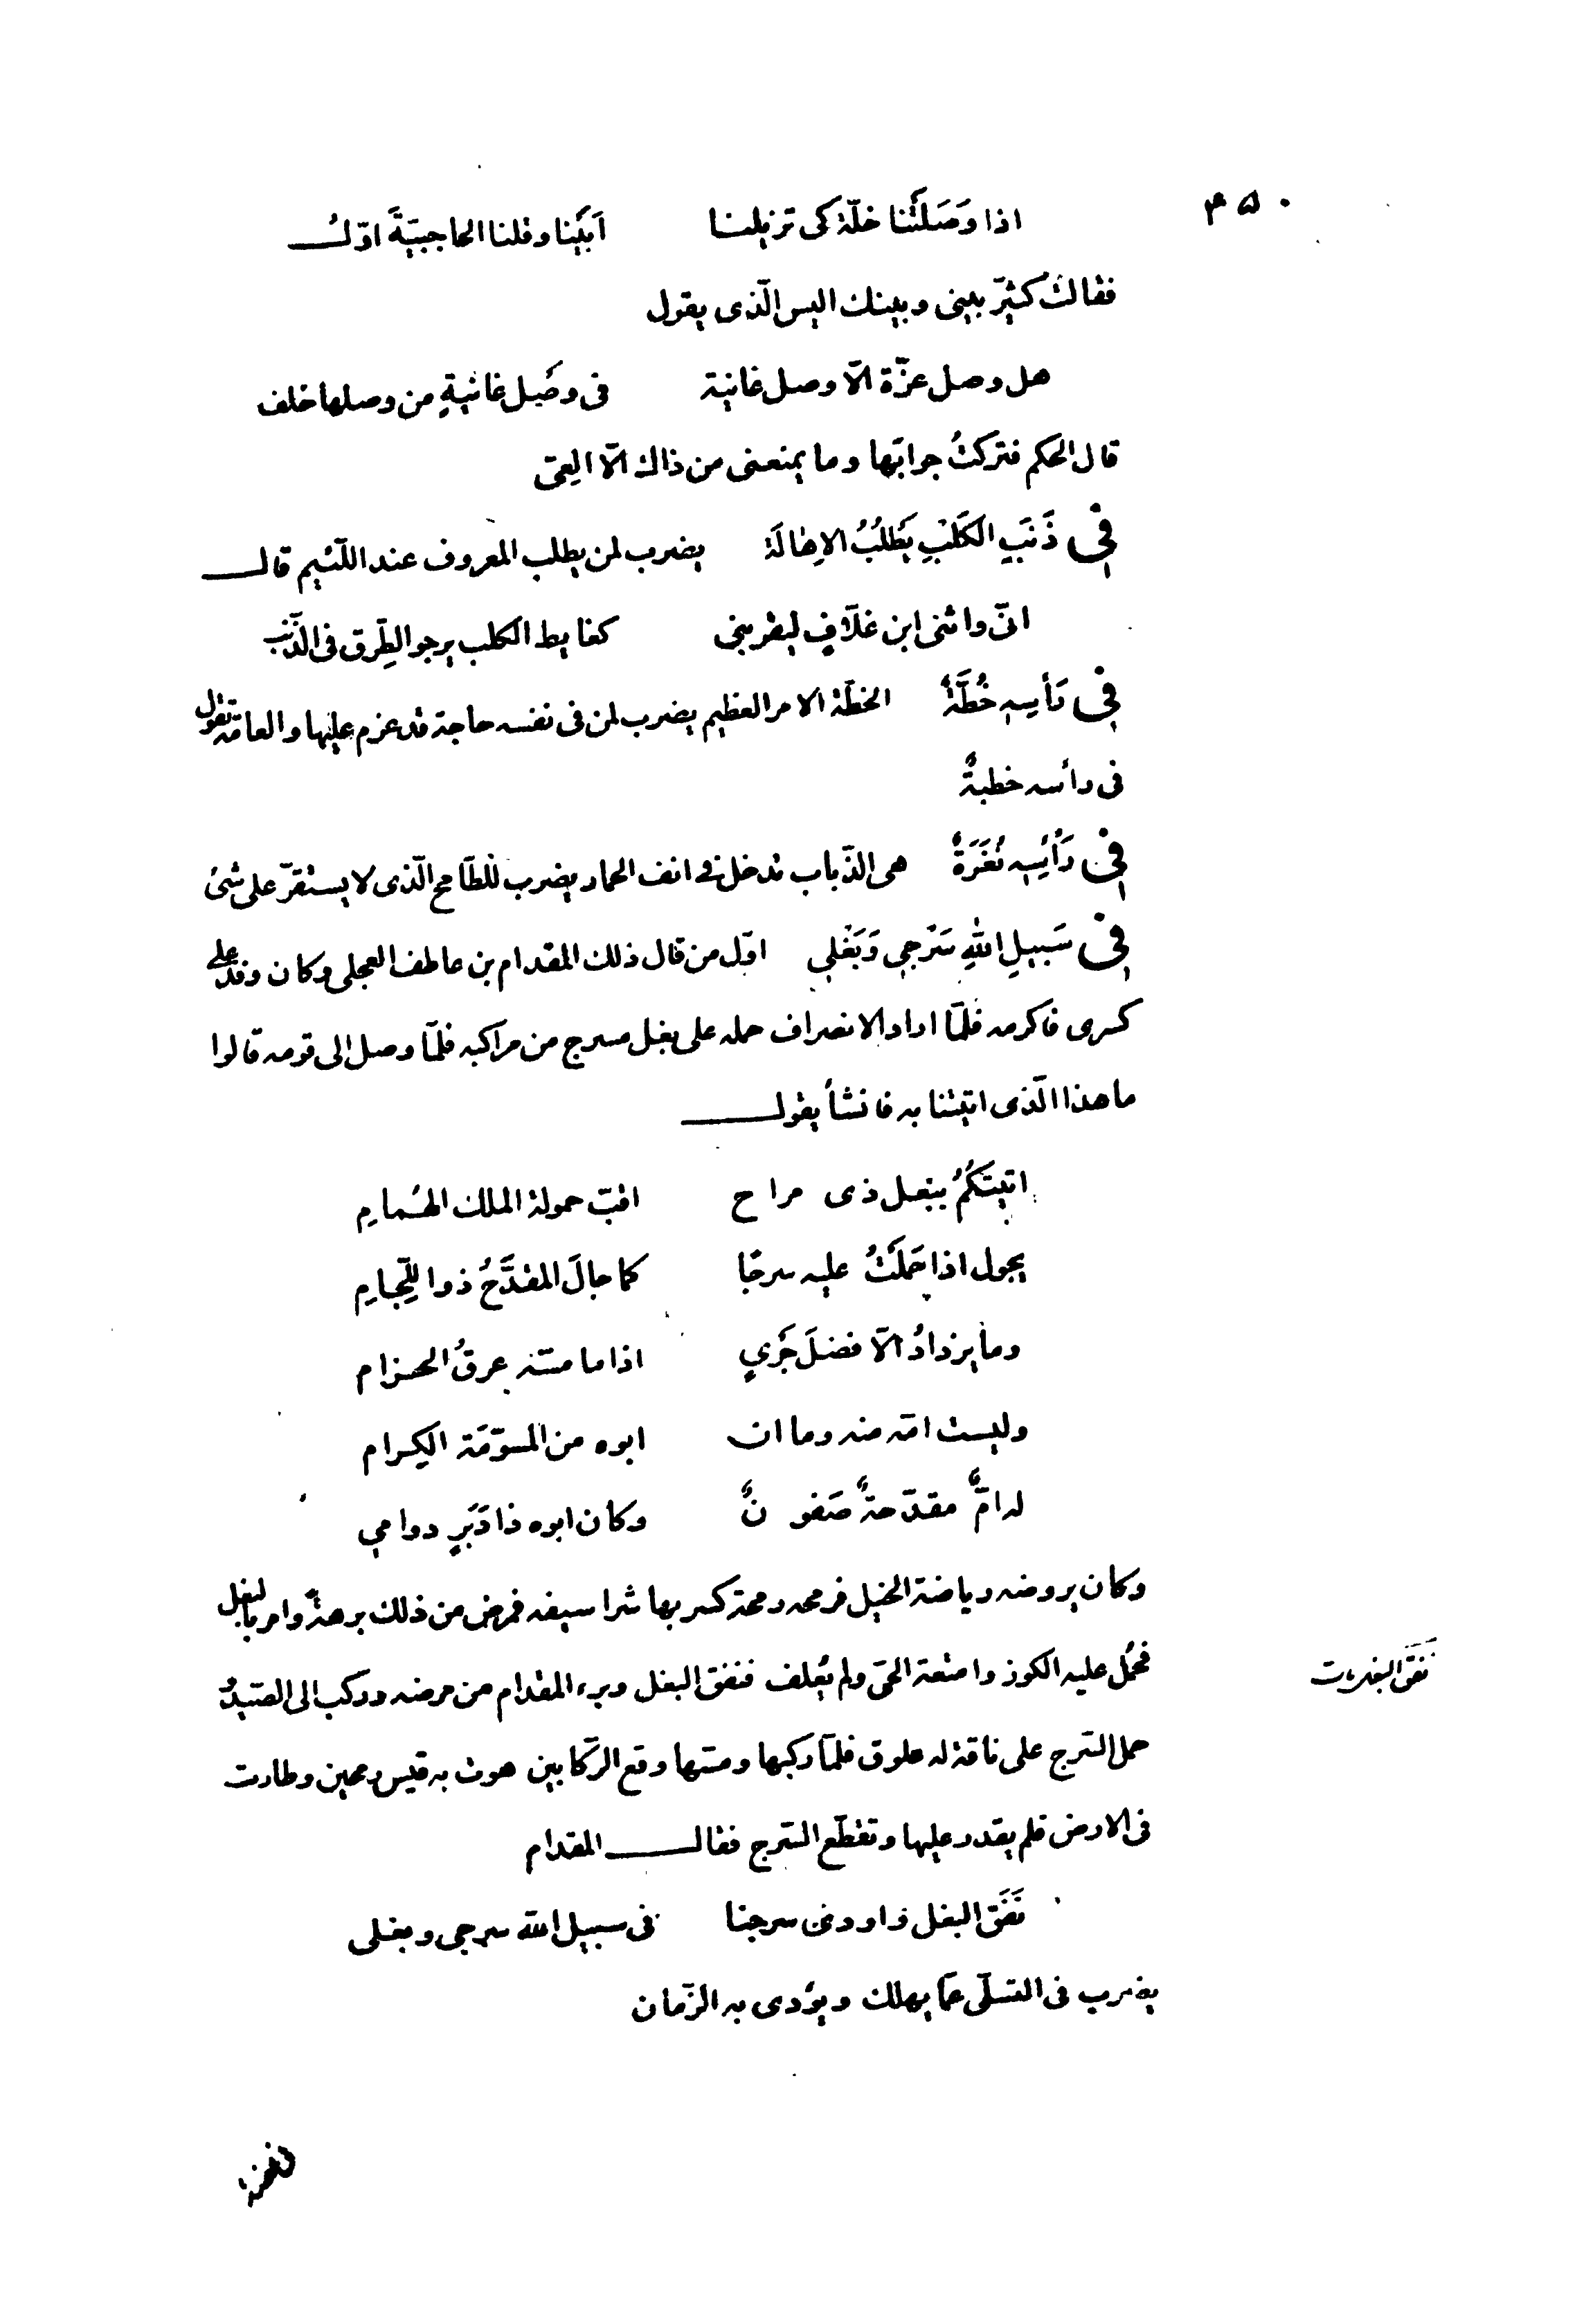 ۴۵۰
اذا وَصَلَتْنا خلّة كى تزيلنا    اَبَيْنا وقلنا الحاجبيّةَ اوّلُ
فقالت كثيّر بينى وبينك اليس الّذى يقول
هل وصل عزّة الّا وصل غانية    فى وصَل غانيةٍ من وصلها خلف
قال الحكم فتركتُ جوابَها وما يمنعنى من ذاك الّا العِىّ
فى ذَنَبِ الكَلْبِ يَطْلُبُ الاِهالَةَ    يضرب لمن يطلب المعروف عند اللّئيم قال
انّى واتنى ابن غلّاقٍ ليقرينى    كغابط الكلب يرجو الطِّرق فى الذّنب
فى رَأسِهِ خُطَّةٌ    الخطّة الامر العظيم يضرب لمن فى نفسه حاجة قد عزم عليها والعامّة تقول
فى رأسه خطبةٌ
فى رَأْسِهِ نُعَرَةٌ    هى الذّباب تدخل فى انف الحمار يضرب للطّامح الّذى لا يستقرّ على شئ
فى سَبيلِ اللهِ سَرْجى وَبَغْلى    اوّل من قال ذلك المقدام بن عاطف العجلى وكان وفد على
كسرى فاكرمه فلمّا اراد الانصراف حمله على بغل مسرج من مراكبه فلمّا وصل الى قومه قالوا
ما هذا الّذى اتيتنا به فانشأ يقول
اتيتكُمُ ببغل ذى مراح    اقبّ حمولة الملك الهُمامِ
يجول اذا حَمَلْتُ عليه سرجًا    كما جالَ المقدَّحُ ذو اللِّجامِ
وما يزدادُ الّا فضلَ جَرْيٍ    اذا ما مسّه عرقُ الحزام
وليست امّه منه وما ان    ابوه من المسوّمَة الكِرام
له امٌّ مقدّحةٌ صَفونٌ    وكان ابوه ذا دَبَرٍ دوامي
وكان يروضه رياضة الخيل فرمحه رمحة كسر بها شراسيفه فمرض من ذلك برهةً وامر بالبغل
فحُمل عليه الكور وامتعة الحىّ ولم يُعلف فنفق البغل وبرء المقدام من مرضه وركب الى الصّيد و
حمل السّرج على ناقة له علوق فلمّا ركبها ومسّها وقع الرّكابين هوت به قيس رمحين وطارت
فى الارض فلم يقدر عليها وتقطّع السّرج فقال المقدام
نَفَق البغل واودى سرجنا    فى سبيل الله سرجى وبغلى
يضرب فى التسلّى عمّا يهلك ويؤدى به الزّمان
نفق البغل مات